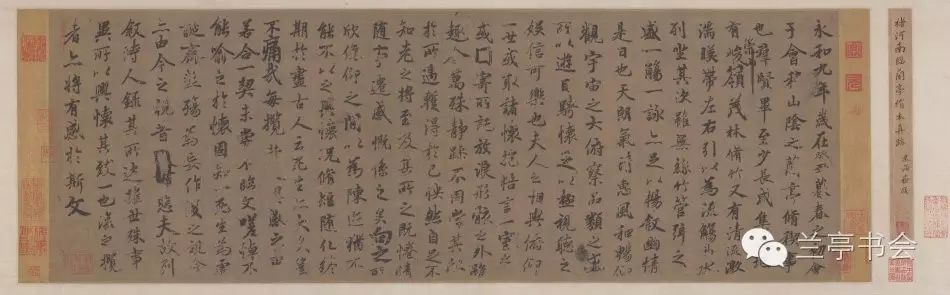 褚河南臨蘭亭絹本真跡
永和九年歲在癸丑暮春之初會
于會稽山陰之蘭亭脩稧事
也羣賢畢至少長咸集此地
崇山
有峻領茂林脩竹又有清流激
湍暎帶左右引以為流觴曲水
列坐其次雖無絲竹管弦之
盛一觴一詠亦足以暢敘幽情
是日也天朗氣清惠風和暢仰
觀宇宙之大俯察品類之盛
所以遊目騁懷足以極視聽之
娛信可樂也夫人之相與俯仰
一世或取諸懷抱悟言一室之內
或因寄所託放浪形骸之外雖
趣舍萬殊靜躁不同當其欣
於所遇暫得於己快然自足不
知老之將至及其所之既惓情
隨事遷感慨係之矣向之所
欣俛仰之間以為陳迹猶不
能不以之興懷況脩短隨化終
期於盡古人云死生亦大矣豈
不痛哉每攬昔人興感之由
若合一契未嘗不臨文嗟悼不
能喻之於懷固知一死生為虛
誕齊彭殤為妄作後之視今
亦由今之視昔悲夫故列
敘時人錄其所述雖世殊事
異所以興懷其致一也後之攬
者亦將有感於斯文
兰亭书会